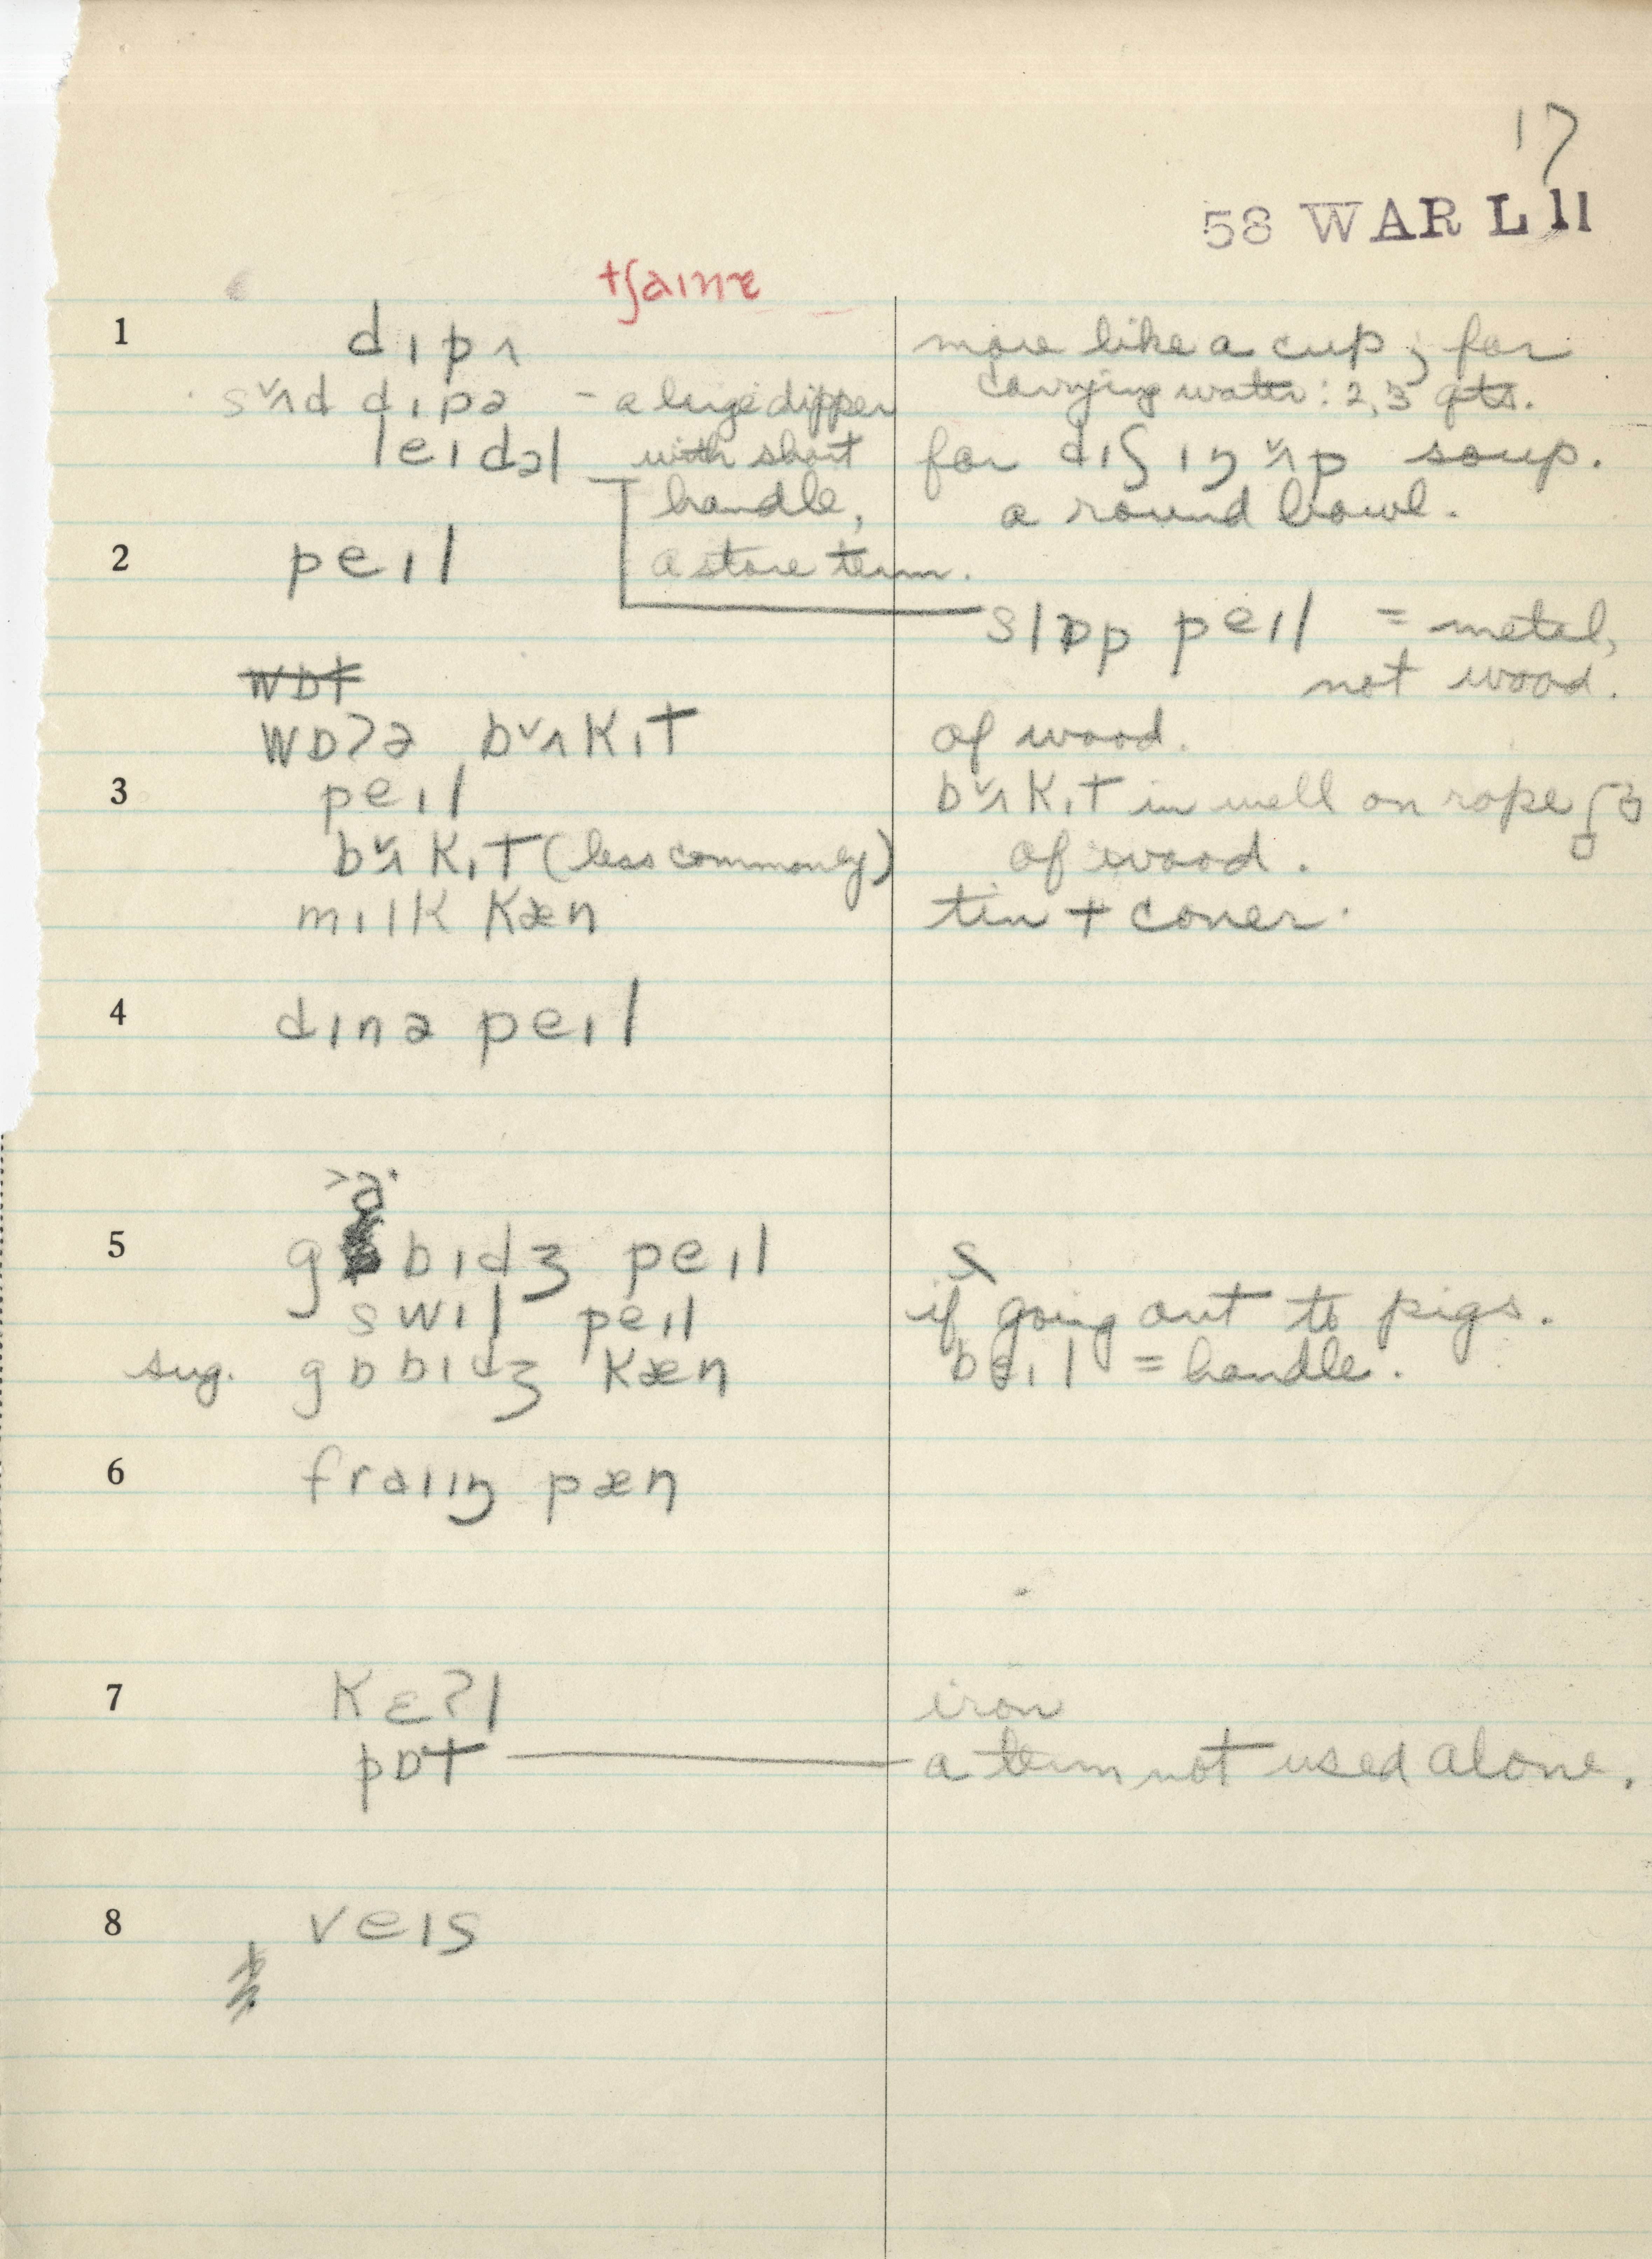 17
58 WAR L 11
tʃaɪnɛ
1 dɪpʌ more like a cup; for
sˇʌd dɪpə - a large dipper carrying water: 2, 3 qts.
leɪdəl with short for dɪʃɪŋ ˇʌp soup.
handle, a round bowl.
2 peɪl a store term.
slɒp peɪl = metal,
wɒt not wood.
wɒʔə bˇʌkɪt of wood.
3 peɪl bˇʌkɪt in well on rope
bˇʌkɪt (less commonly) of wood.
mɪlk kæn tin + cover.
4 dɪnə peɪl
>a·
5 g bɪdʒ peɪl s
swɪl peɪl if going out to pigs.
sug. gɒbɪdʒ kæn beɪl = handle.
6 fraɪɪŋ pæn
7 kɛʔl iron
pɒt a term not used alone.
8 veɪs